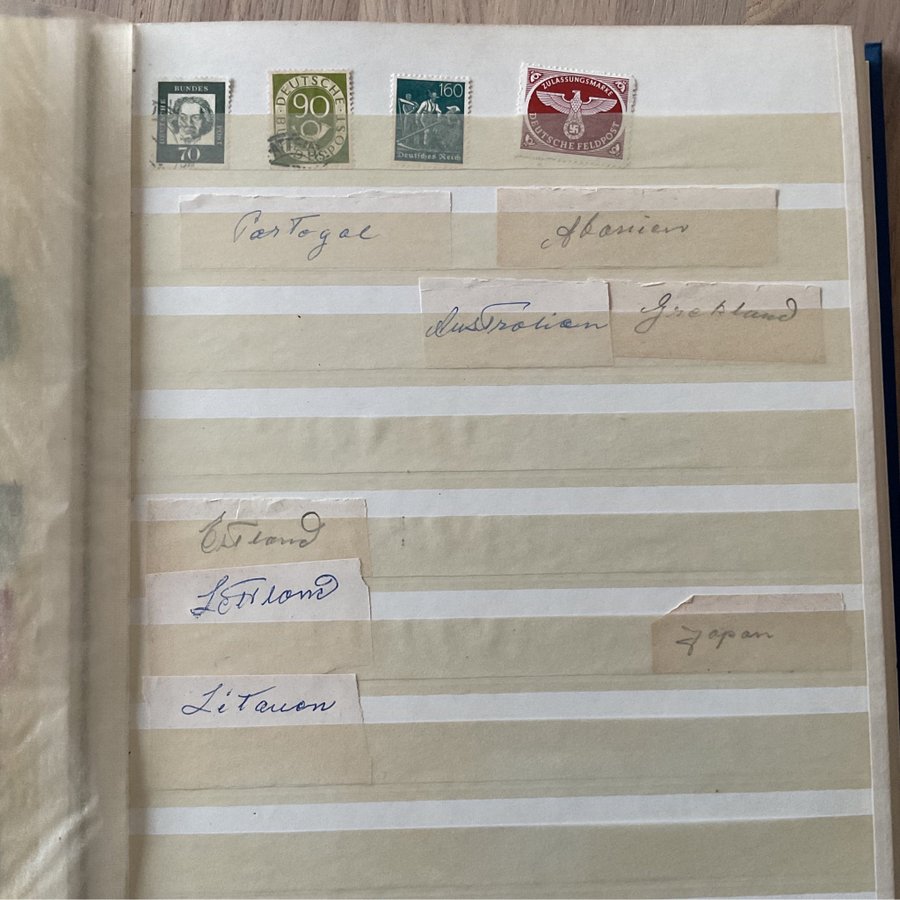 BUNDES
DEUTSCHE
70
DEUTSCHE
90
BUNDESPOST
160
Deutsches Reich
ZULASSUNGSMARKE
DEUTSCHE FELDPOST
Portogal
Abanien
Australien
Grekland
Estland
Lettland
Japan
Litauen